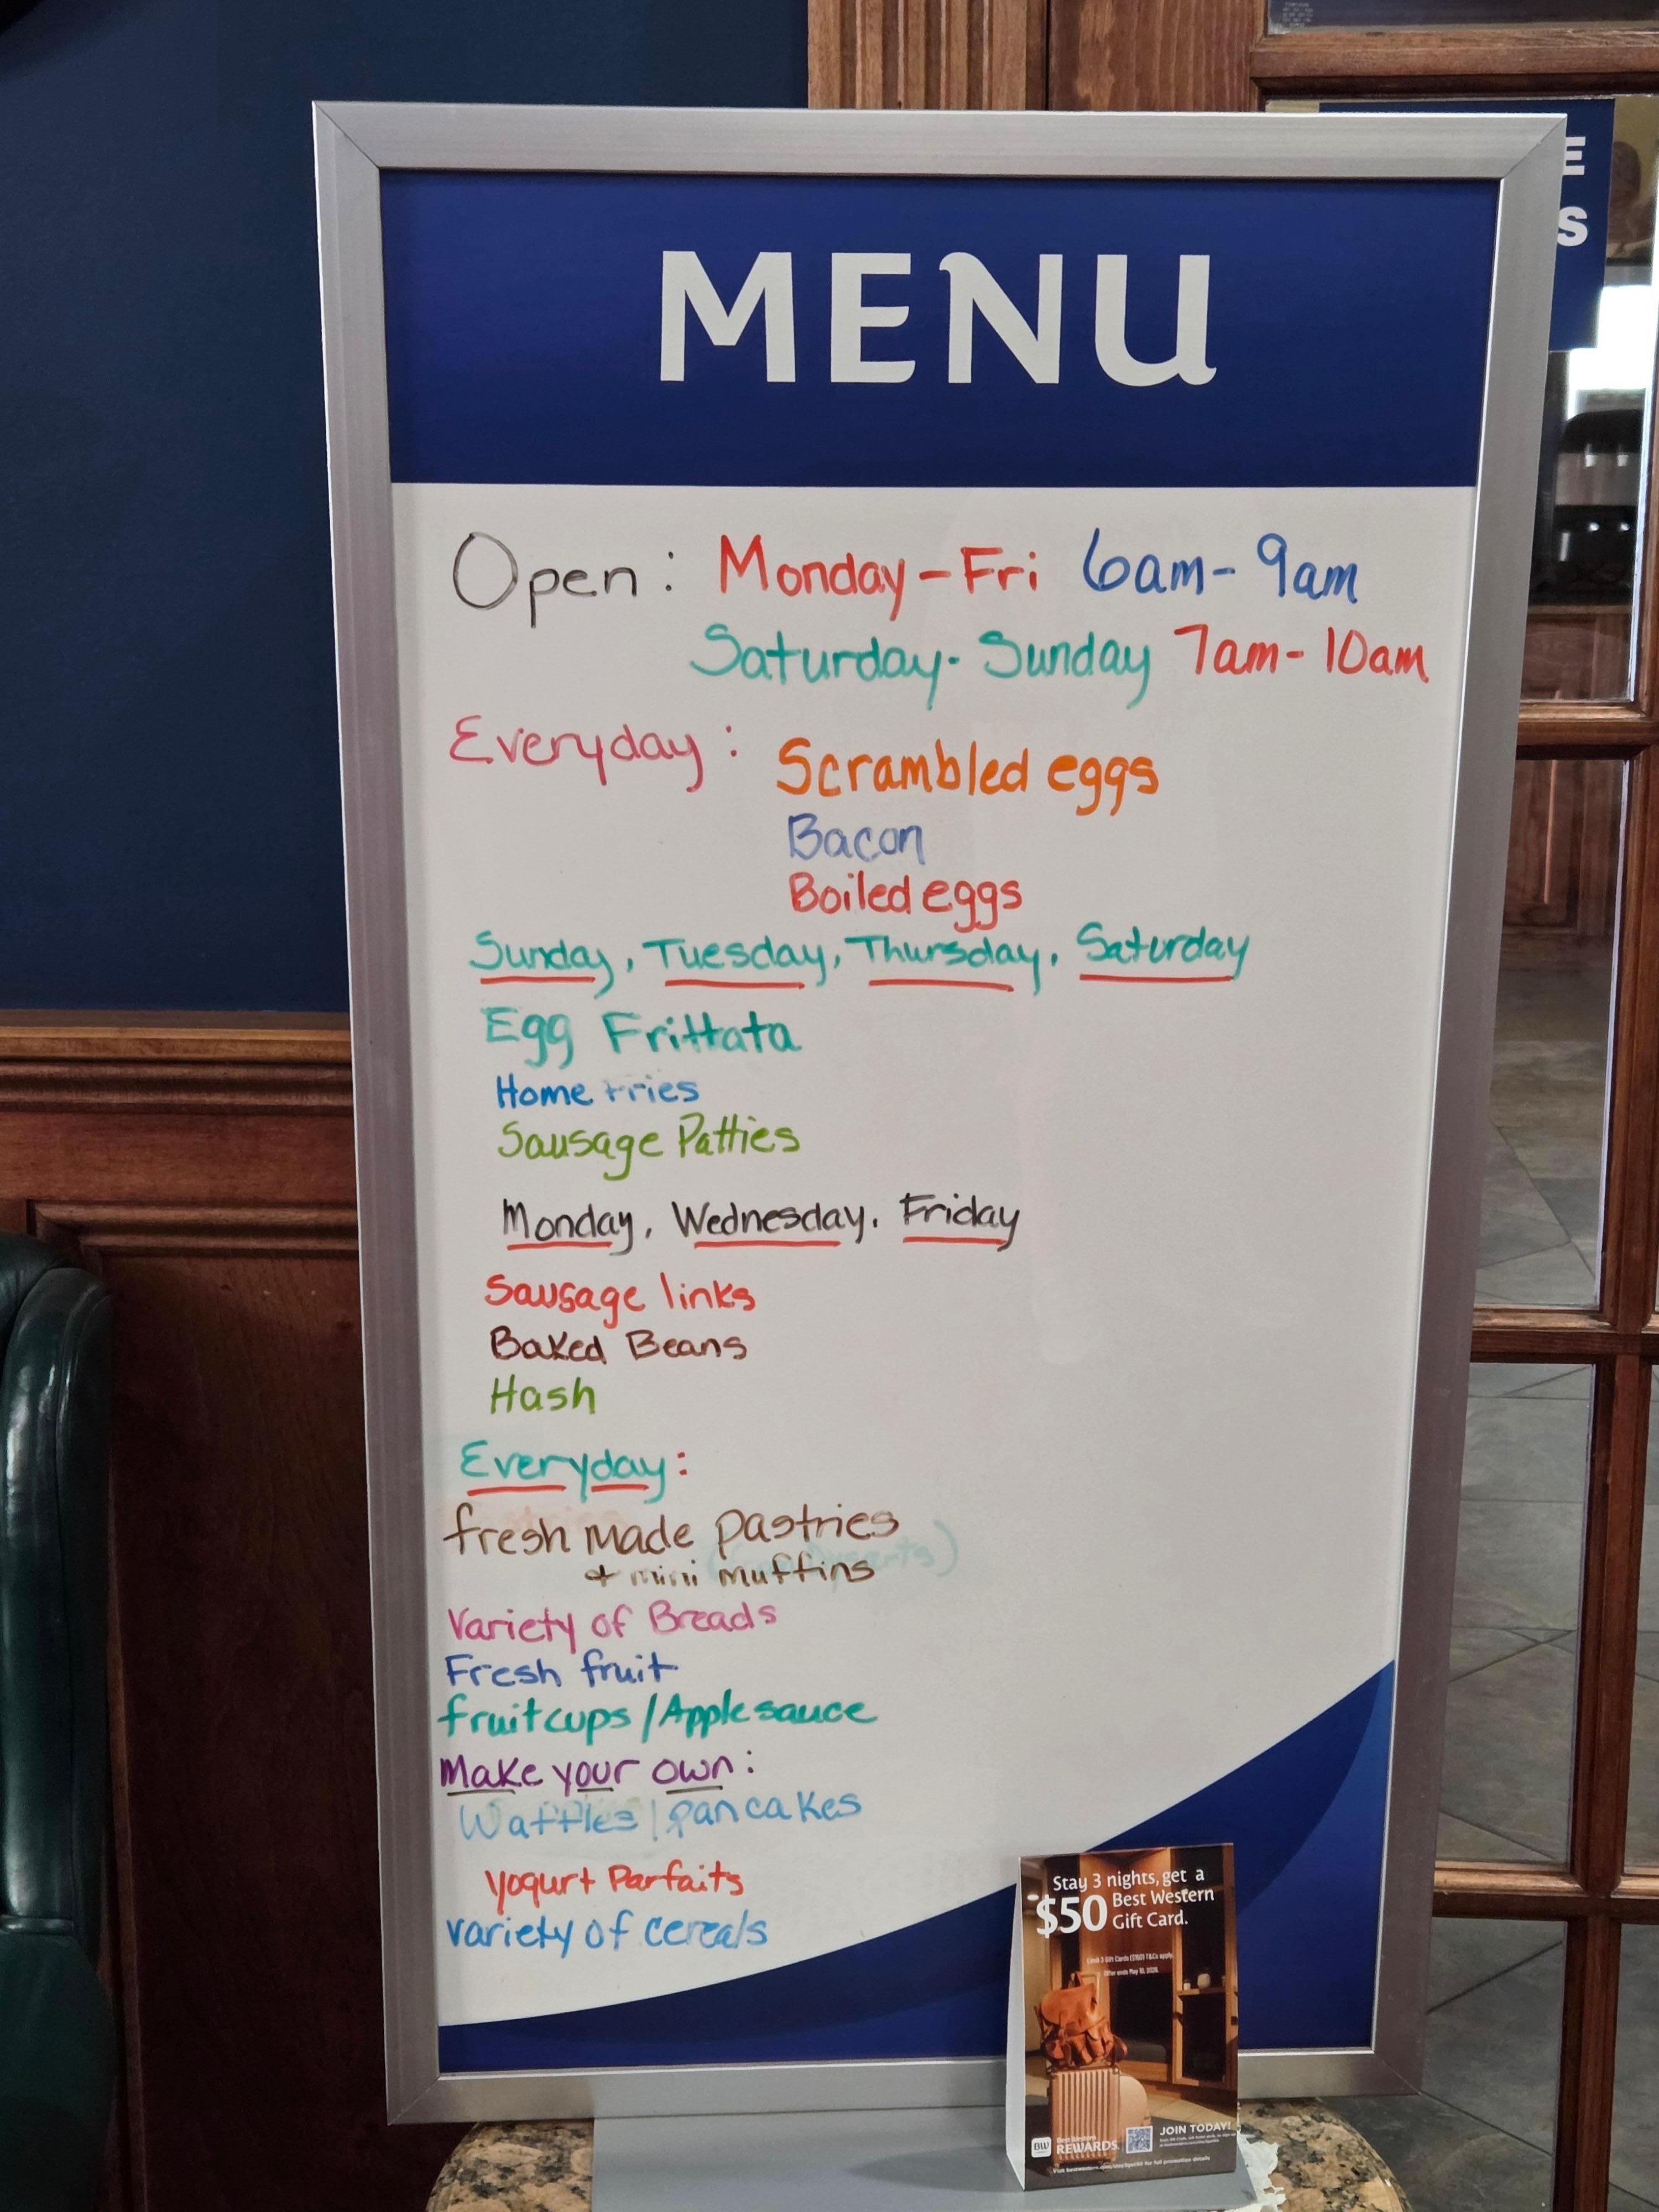 E
S
MENU
Open: Monday-Fri 6am-9am
Saturday-Sunday 7am-10am
Everyday: Scrambled eggs
Bacon
Boiled eggs
Sunday, Tuesday, Thursday, Saturday
Egg Frittata
Home Fries
Sausage Patties
Monday, Wednesday, Friday
Sausage links
Baked Beans
Hash
Everyday:
fresh made pastries
+ mini muffins
Variety of Breads
Fresh fruit
fruit cups/Applesauce
Make your own:
Waffles/pancakes
yogurt Parfaits
variety of cereals
Stay 3 nights, get a
$50 Best Western
Gift Card.
Limit 3 Gift Cards ($150) T&Cs apply.
BW
Best Western
REWARDS.
JOIN TODAY!